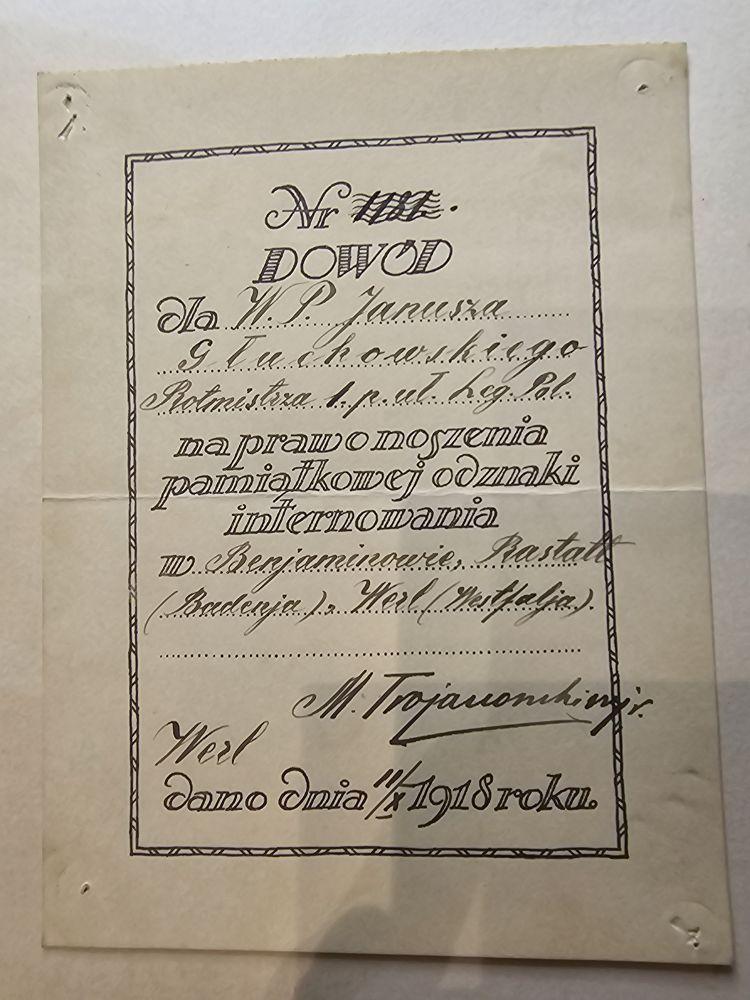 Nr
DOWÓD
dla W. P. Janusza
Głuchowskiego
Rotmistrza 1. p. uł. Leg. Pol.
na prawo noszenia
pamiątkowej odznaki
internowania
w Benjaminowie, Rastatt
(Badenja), Werl (Westfalja).
M. Trojanowski mjr.
Werl
dano dnia 11/X 1918 roku.